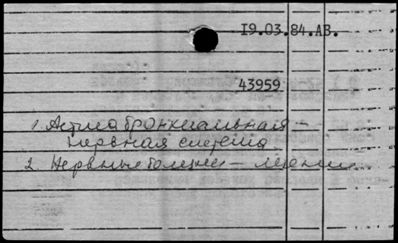 19.03.84.АВ.
43959
1. Астма бронхиальная –
нервная система
2. Нервные болезни – лечение